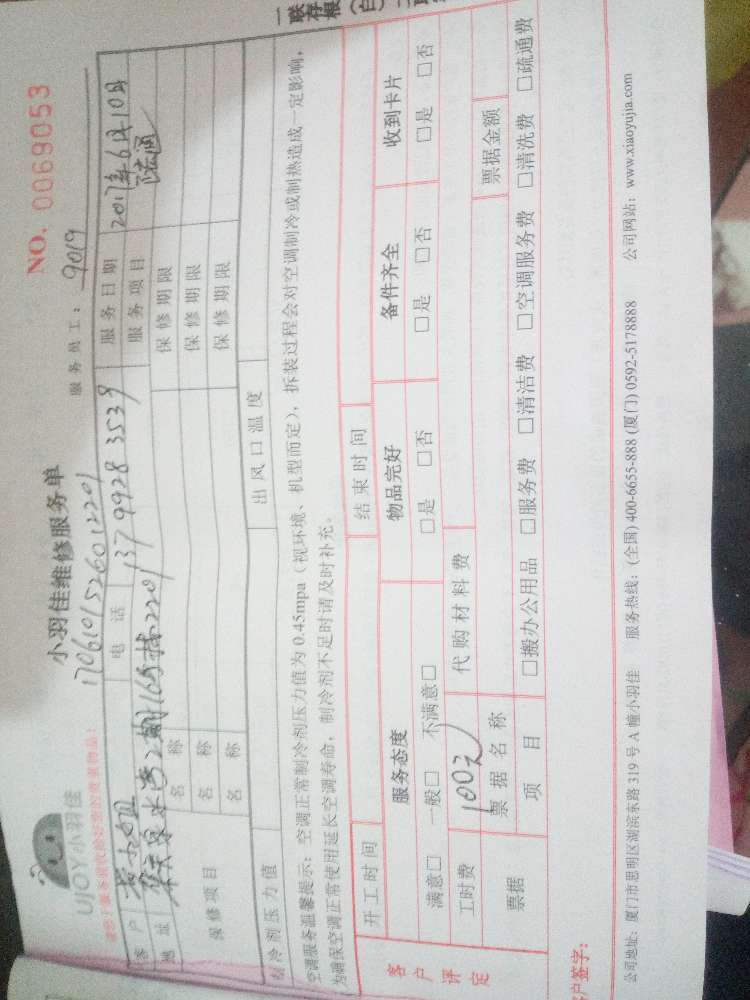 一联存根(白)二联
NO. 0069053
UJOY小羽佳
小羽佳维修服务单
170610152601 2201
服务员工: 9019
请您于服务前收拾好您的贵重物品!
客户 小姐 电话 137 9928 3539 服务日期 2017年6月10日
地址 2期 165栋2201 服务项目
保修项目 名称 保修期限
名称 保修期限
名称 保修期限
制冷剂压力值 出风口温度
空调服务温馨提示:空调正常制冷剂压力值为0.45mpa(视环境、机型而定),拆装过程会对空调制冷或制热造成一定影响,
为确保空调正常使用延长空调寿命,制冷剂不足时请及时补充。
开工时间 结束时间
客户评定 服务态度 物品完好 备件齐全 收到卡片
满意□ 一般□ 不满意□ □是 □否 □是 □否 □是 □否
工时费 100元 代购材料费
票据 票据名称 票据金额
项目 □搬办公用品 □服务费 □清洁费 □空调服务费 □清洗费 □疏通费
客户签字:
公司地址:厦门市思明区湖滨东路319号A幢小羽佳 服务热线:(全国)400-6655-888 (厦门)0592-5178888 公司网站:www.xiaoyujia.com